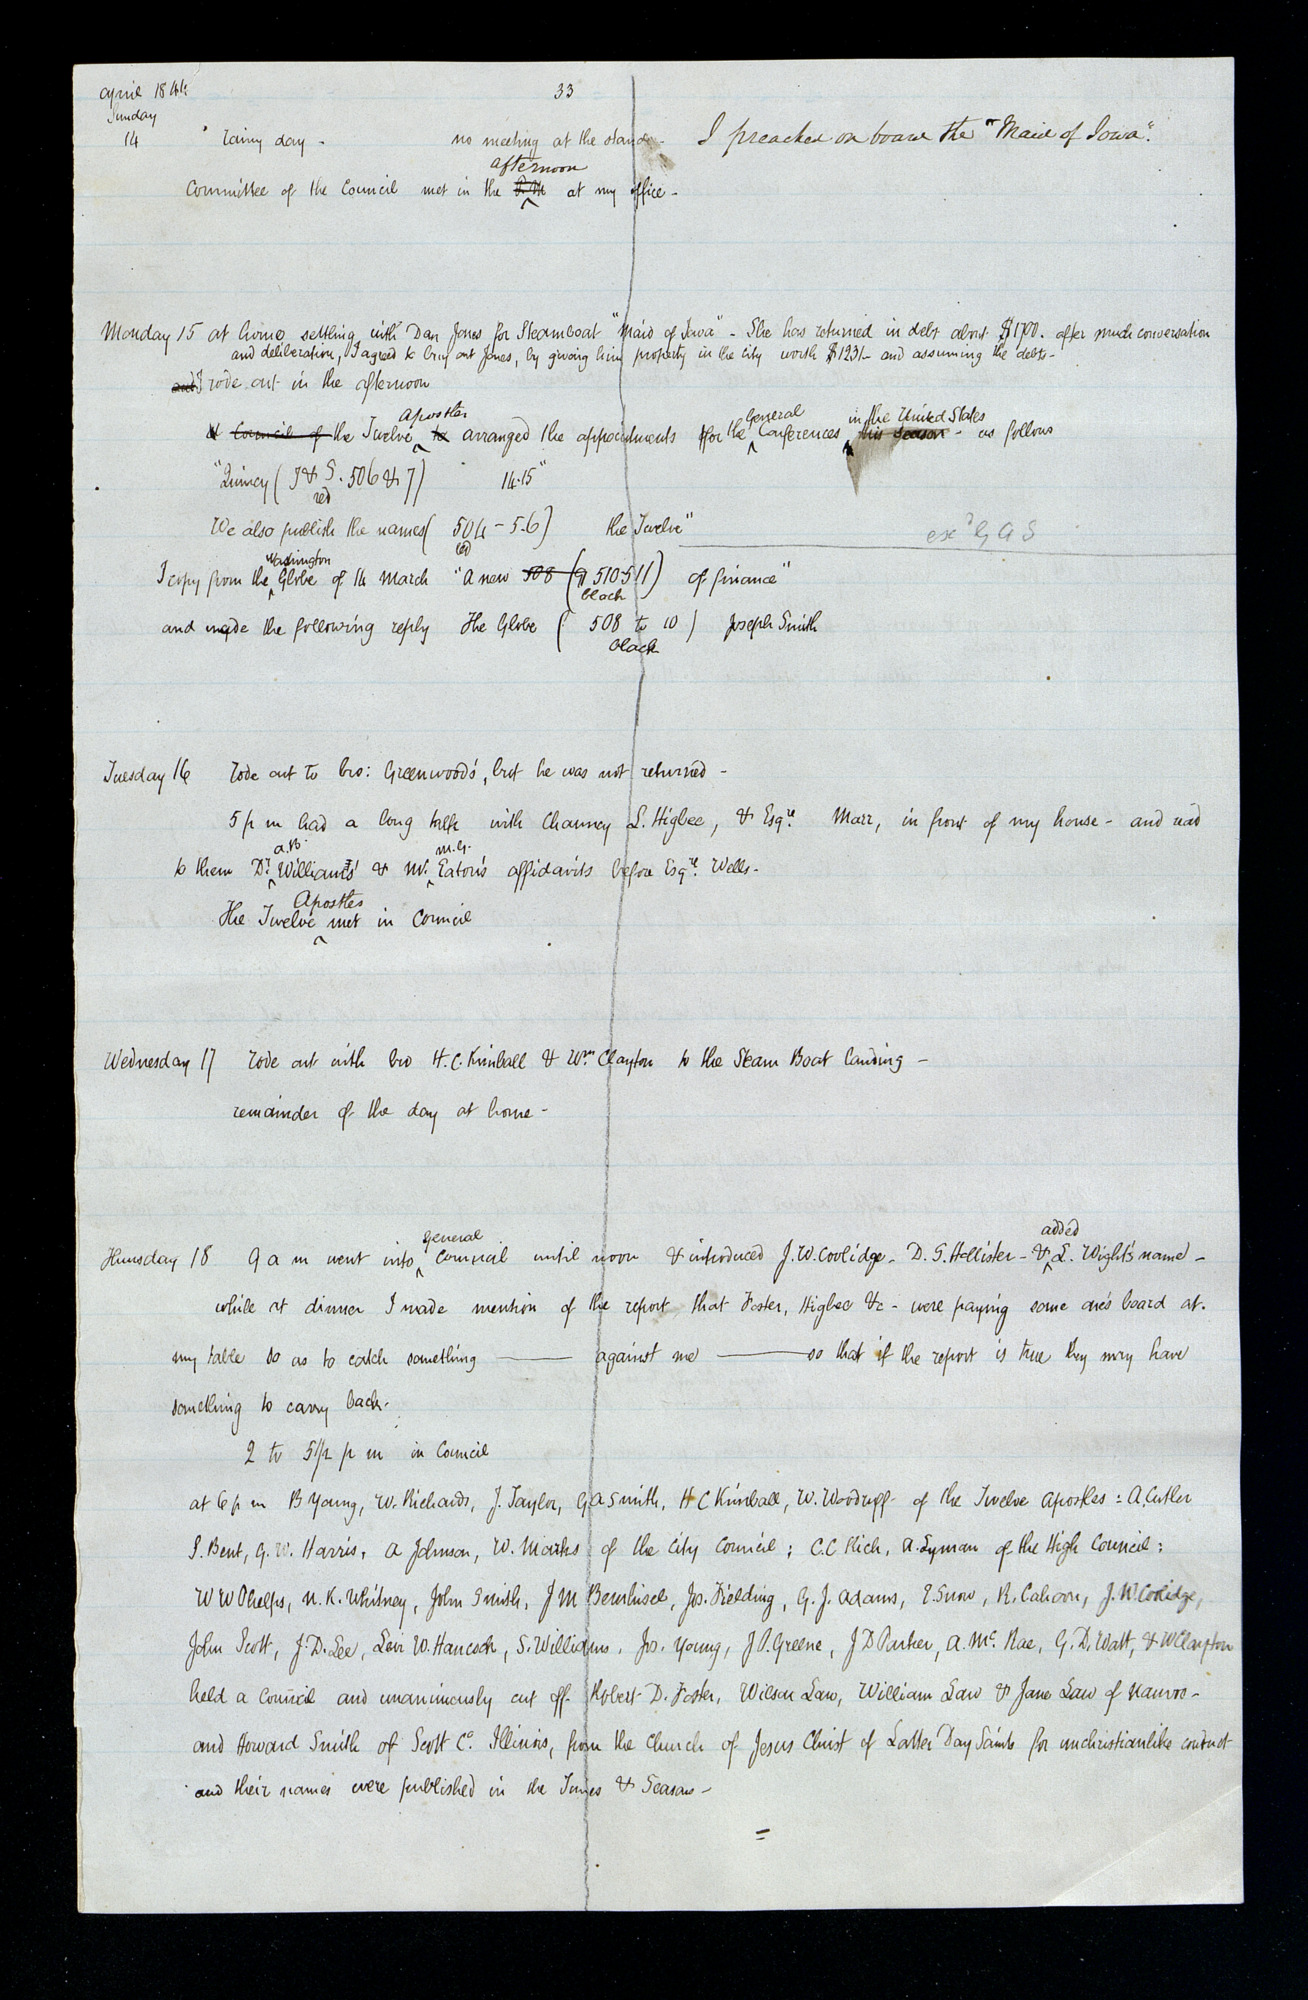 April 1844 33
Sunday
14 rainy day - no meeting at the stand - I preached on board the "Maid of Iowa".
afternoon
Committee of the Council met in the P.M at my office -
Monday 15 at home settling with Dan Jones for Steamboat "Maid of Iowa" - She has returned in debt about $1700. after much conversation
and deliberation, I agreed to buy out Jones, by giving him property in the city worth $1231- and assuming the debts-
and I rode out in the afternoon
Apostles General in the United States
Council of the Twelve to arranged the appointments for the Conferences this season - as follows
"Quincy ( T & S. 506 & 7) 14.15"
red
We also publish the names ( 504 - 5.6) the Twelve"
red
exd G A S
Washington
I copy from the Globe of 14 March "A new 508 (q 510 511) of finance"
black
and made the following reply The Globe ( 508 to 10 ) Joseph Smith
black
Tuesday 16 rode out to bro: Greenwood's, but he was not returned -
5 p m had a long talk with Chauncy L. Higbee, & Esqre. Marr, in front of my house - and read
A.B. M.G.
to them Dr. Williams' & Mr. Eaton's affidavits before Esqre. Wells -
Apostles
The Twelve met in Council
Wednesday 17 rode out with bro H. C. Kimball & Wm. Clayton to the Steam Boat landing -
remainder of the day at home -
general added
Thursday 18 9 a m went into Council until noon & introduced J. W. Coolidge - D. S. Hollister - & L. Wight's name -
while at dinner I made mention of the report that Foster, Higbee &c - were paying some one's board at.
my table so as to catch something —— against me —— so that if the report is true they may have
something to carry back -
2 to 5 1/2 p m in Council
at 6 p m B Young, W. Richards, J. Taylor, G A Smith, H C Kimball, W. Woodruff - of the Twelve Apostles : A. Cutler
S. Bent, G. W. Harris, A Johnson, W. Marks of the City Council ; C. C Rich, A. Lyman of the High Council :
W W Phelps, N. K. Whitney, John Smith, J M Bernhisel, Jos. Fielding, G. J. Adams, E. Snow, R. Cahoon, J. W. Coolidge,
John Scott, J. D. Lee, Levi W. Hancock, S. Williams, Jos. Young, J P. Greene, J D Parker, A. Mc. Rae, G. D. Watt, & W Clayton
held a Council and unanimously cut off Robert D. Foster, Wilson Law, William Law & Jane Law of Nauvoo -
and Howard Smith of Scott Co. Illinois, from the Church of Jesus Christ of Latter Day Saints for unchristianlike conduct
and their names were published in the Times & Seasons -